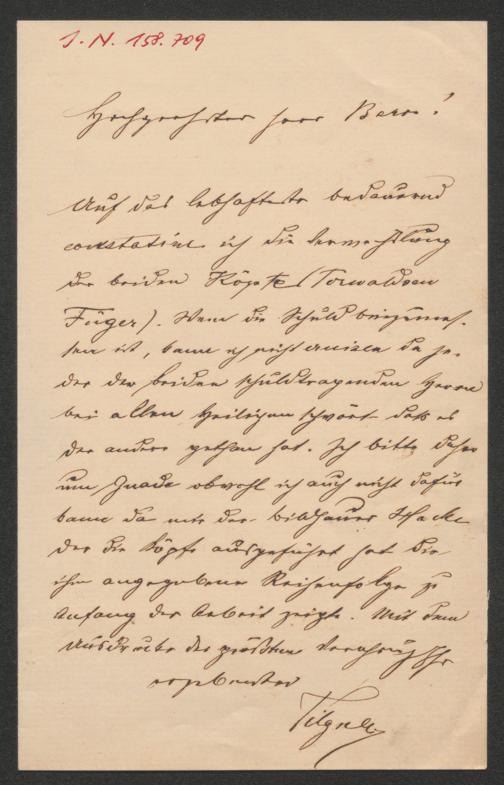 J. N. 158.709
Hochgeehrter Herr Baron!
Auf das lebhafteste bedauernd
constatire ich die Verwechslung
der beiden Köpfe (Torwaldsen
Füger). Wem die Schuld beizumes-
sen ist, kann ich nicht wissen da je-
der der beiden schuldtragenden Herrn
bei allen Heiligen schwört daß es
der andere gethan hat. Ich bitte daher
um Gnade obwohl ich auch nicht dafür
kann da mir der Bildhauer Hacke
der die Köpfe ausgeführt hat die
ihm angegebene Reihenfolge zu
Anfang der Arbeit zeigte. Mit dem
Ausdrucke der größten Verehrung Ihr
ergebenster
Tilgner